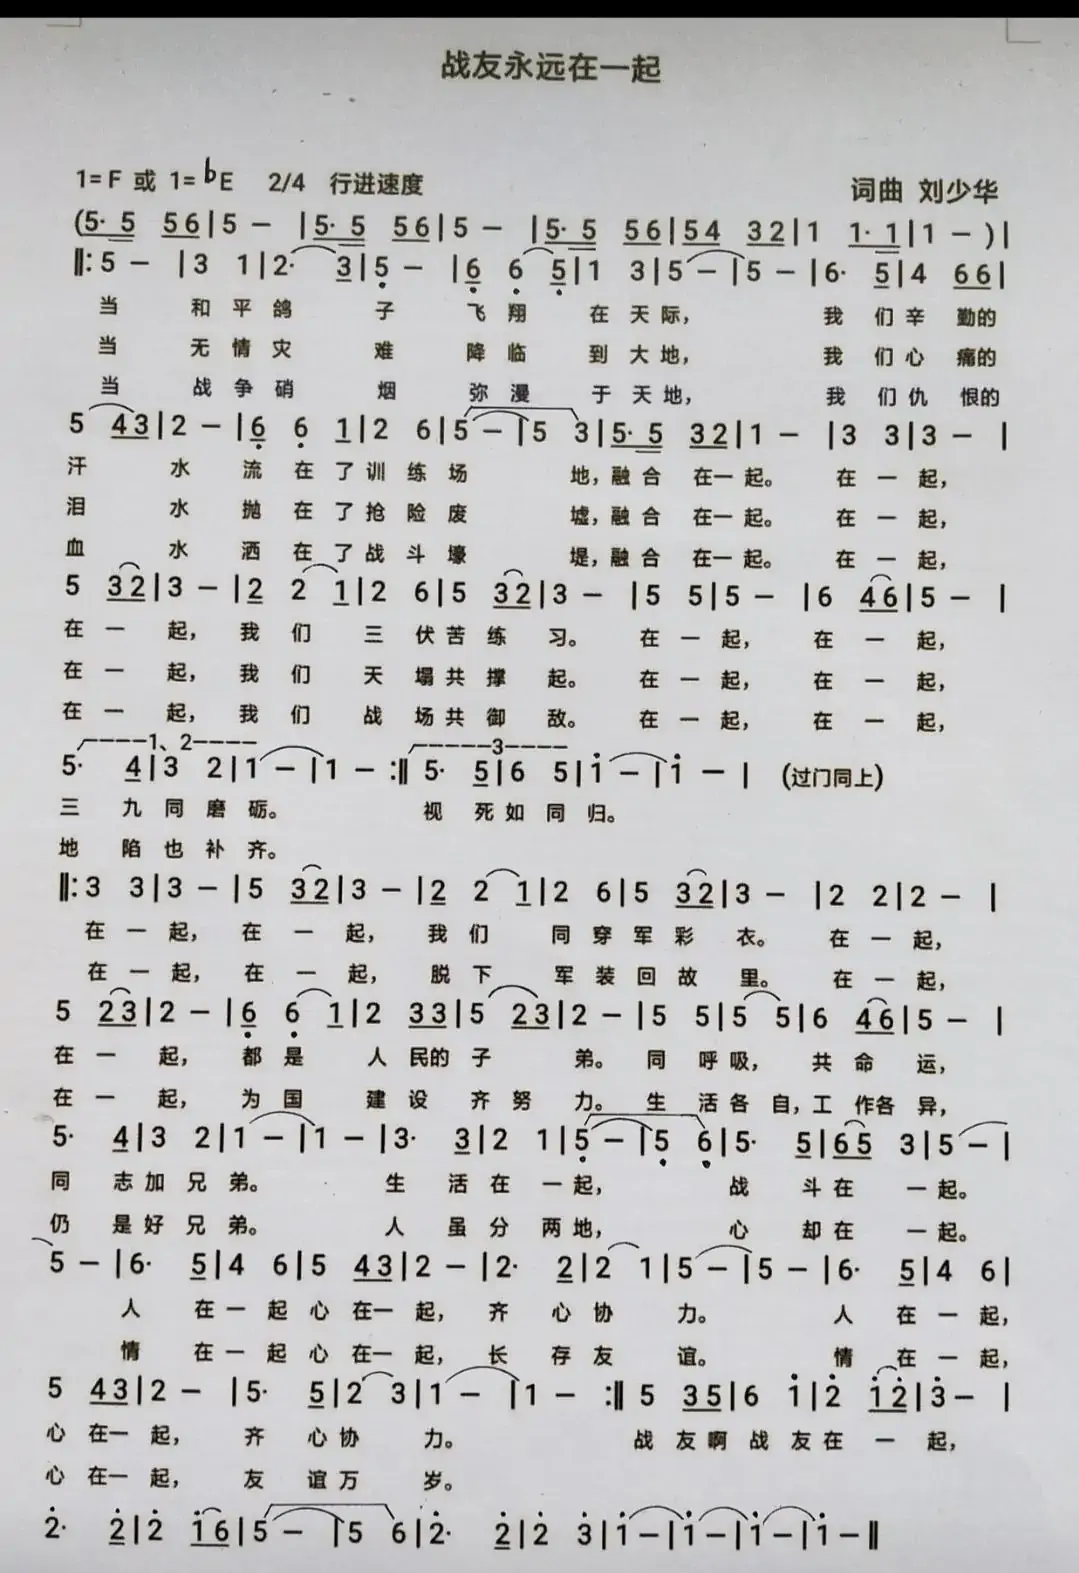 战友永远在一起
1=F 或 1=bE 2/4 行进速度
词曲 刘少华
(5· 5 5 6 | 5 — | 5· 5 5 6 | 5 — | 5· 5 5 6 | 5 4 3 2 | 1 1· 1 | 1 — ) |
‖: 5 — | 3 1 | 2· 3 | 5 — | 6 6 5 | 1 3 | 5 — | 5 — | 6· 5 | 4 6 6 |
当 和 平 鸽 子 飞 翔 在 天 际, 我 们 辛 勤的
当 无 情 灾 难 降 临 到 大 地, 我 们 心 痛的
当 战 争 硝 烟 弥 漫 于 天 地, 我 们 仇 恨的
5 4 3 | 2 — | 6 6 1 | 2 6 | 5 — | 5 3 | 5· 5 3 2 | 1 — | 3 3 | 3 — |
汗 水 流 在 了 训 练 场 地, 融 合 在一 起。 在 一 起,
泪 水 抛 在 了 抢 险 废 墟, 融 合 在一 起。 在 一 起,
血 水 洒 在 了 战 斗 壕 堤, 融 合 在一 起。 在 一 起,
5 3 2 | 3 — | 2 2 1 | 2 6 | 5 3 2 | 3 — | 5 5 | 5 — | 6 4 6 | 5 — |
在 一 起, 我 们 三 伏 苦 练 习。 在 一 起, 在 一 起,
在 一 起, 我 们 天 塌 共 撑 起。 在 一 起, 在 一 起,
在 一 起, 我 们 战 场 共 御 敌。 在 一 起, 在 一 起,
1、2 3
5· 4 | 3 2 | 1 — | 1 — :‖ 5· 5 | 6 5 | 1 — | 1 — | (过门同上)
三 九 同 磨 砺。 视 死 如 同 归。
地 陷 也 补 齐。
‖: 3 3 | 3 — | 5 3 2 | 3 — | 2 2 1 | 2 6 | 5 3 2 | 3 — | 2 2 | 2 — |
在 一 起, 在 一 起, 我 们 同 穿 军 彩 衣。 在 一 起,
在 一 起, 在 一 起, 脱 下 军 装 回 故 里。 在 一 起,
5 2 3 | 2 — | 6 6 1 | 2 3 3 | 5 2 3 | 2 — | 5 5 | 5 5 | 6 4 6 | 5 — |
在 一 起, 都 是 人 民的 子 弟。 同 呼 吸, 共 命 运,
在 一 起, 为 国 建 设 齐 努 力。 生 活 各 自, 工 作 各 异,
5· 4 | 3 2 | 1 — | 1 — | 3· 3 | 2 1 | 5 — | 5 6 | 5· 5 | 6 5 3 | 5 — |
同 志 加 兄 弟。 生 活 在 一 起, 战 斗 在 一 起。
仍 是 好 兄 弟。 人 虽 分 两 地, 心 却 在 一 起。
5 — | 6· 5 | 4 6 | 5 4 3 | 2 — | 2· 2 | 2 1 | 5 — | 5 — | 6· 5 | 4 6 |
人 在 一 起 心 在一 起, 齐 心 协 力。 人 在 一 起,
情 在 一 起 心 在一 起, 长 存 友 谊。 情 在 一 起,
5 4 3 | 2 — | 5· 5 | 2 3 | 1 — | 1 — :‖ 5 3 5 | 6 1 | 2 1 2 | 3 — |
心 在一 起, 齐 心 协 力。 战 友 啊 战 友 在 一 起,
心 在一 起, 友 谊 万 岁。
2· 2 | 2 1 6 | 5 — | 5 6 | 2· 2 | 2 3 | 1 — | 1 — | 1 — | 1 — ‖